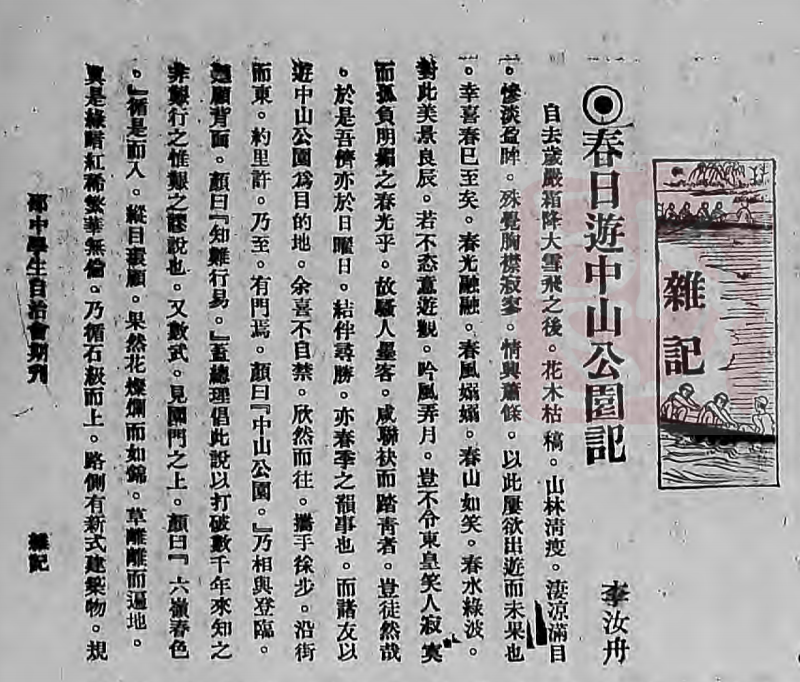 雜記
◉春日遊中山公園記
李汝舟
自去歲嚴霜降大雪飛之後。花木枯稿。山林清瘦。淒涼滿目
。慘淡盈眸。殊覺胸襟寂寥。情興蕭條。以此屢欲出遊而未果也
。幸喜春巳至矣。春光融融。春風嫋嫋。春山如笑。春水綠波。
對此美景良辰。若不恣意遊觀。吟風弄月。豈不令東皇笑人寂寞
而孤負明媚之春光乎。故騷人墨客。咸聯袂而踏青者。豈徒然哉
。於是吾儕亦於日曜日。結伴尋勝。亦春季之韻事也。而諸友以
遊中山公園爲目的地。余喜不自禁。欣然而往。攜手徐步。沿街
而東。約里許。乃至。有門焉。顏曰『中山公園。』乃相與登臨。
廻顧背面。顏曰『知難行易。』蓋總理倡此說以打破數千年來知之
非艱行之惟艱之謬說也。又數武。見園門之上。顏曰『六嶺春色
。』循是而入。縱目環顧。果然花燦爛而如錦。草離離而遍地。
眞是綠暗紅稀繁華無倫。乃循石級而上。路側有新式建築物。規
邵中學生自治會期刊
雜記